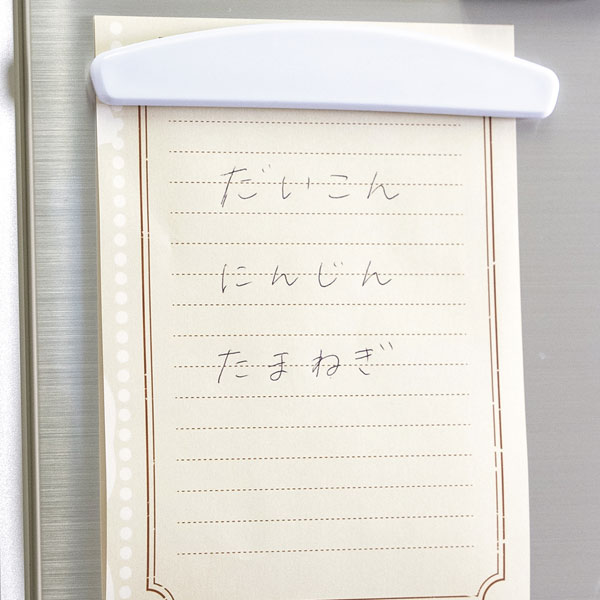 だいこん
にんじん
たまねぎ